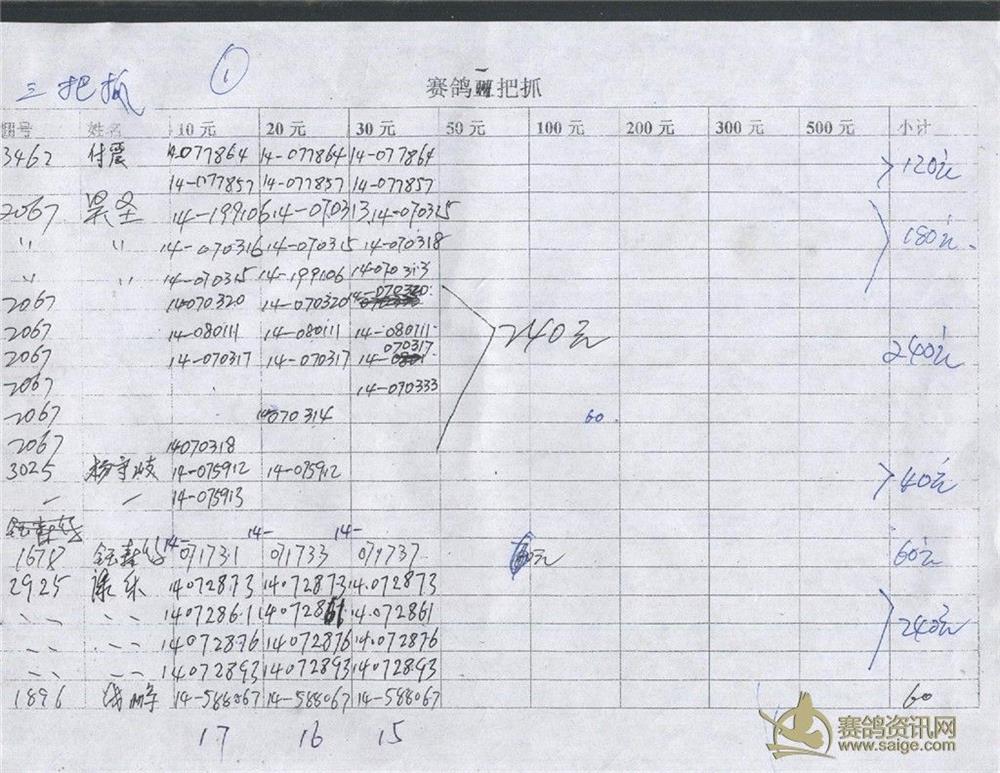 三把抓 ① 赛鸽 三 把抓
翮号 姓名 10元 20元 30元 50元 100元 200元 300元 500元 小计
3462 付震 14-077864 14-077864 14-077864 120元
14-077857 14-077857 14-077857
2067 吴圣 14-199106 14-070313 14-070315 180元
〃 〃 14-070316 14-070315 14-070318
〃 〃 14-070315 14-199106 14070313
2067 14-070320 14-070320 14-070320
2067 14-080111 14-080111 14-080111 240元
2067 14-070317 14-070317 14-070317 240元
2067 14-070333
2067 14070314 60
2067 14070318
3025 14-075912 14-075912 40元
14-075913
1678 14-071731 14-071733 14-071737 60元 60元
2925 陈乐 14072873 14072873 14.072873
〃 〃 14072861 14072861 14.072861 240元
〃 〃 14072876 14072876 14.072876
〃 〃 14072893 14072893 14.072893
1896 14-588067 14-588067 14-588067 60
17 16 15
赛鸽资讯网
www.saige.com